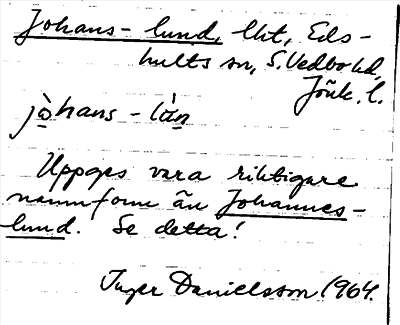 Johans-lund, lht, Eds-
hults sn, S. Vedbo hd,
Jönk. l.
jòhans-làn
Uppges vara riktigare
namnform än Johannes-
lund. Se detta!
Inger Danielsson 1964.